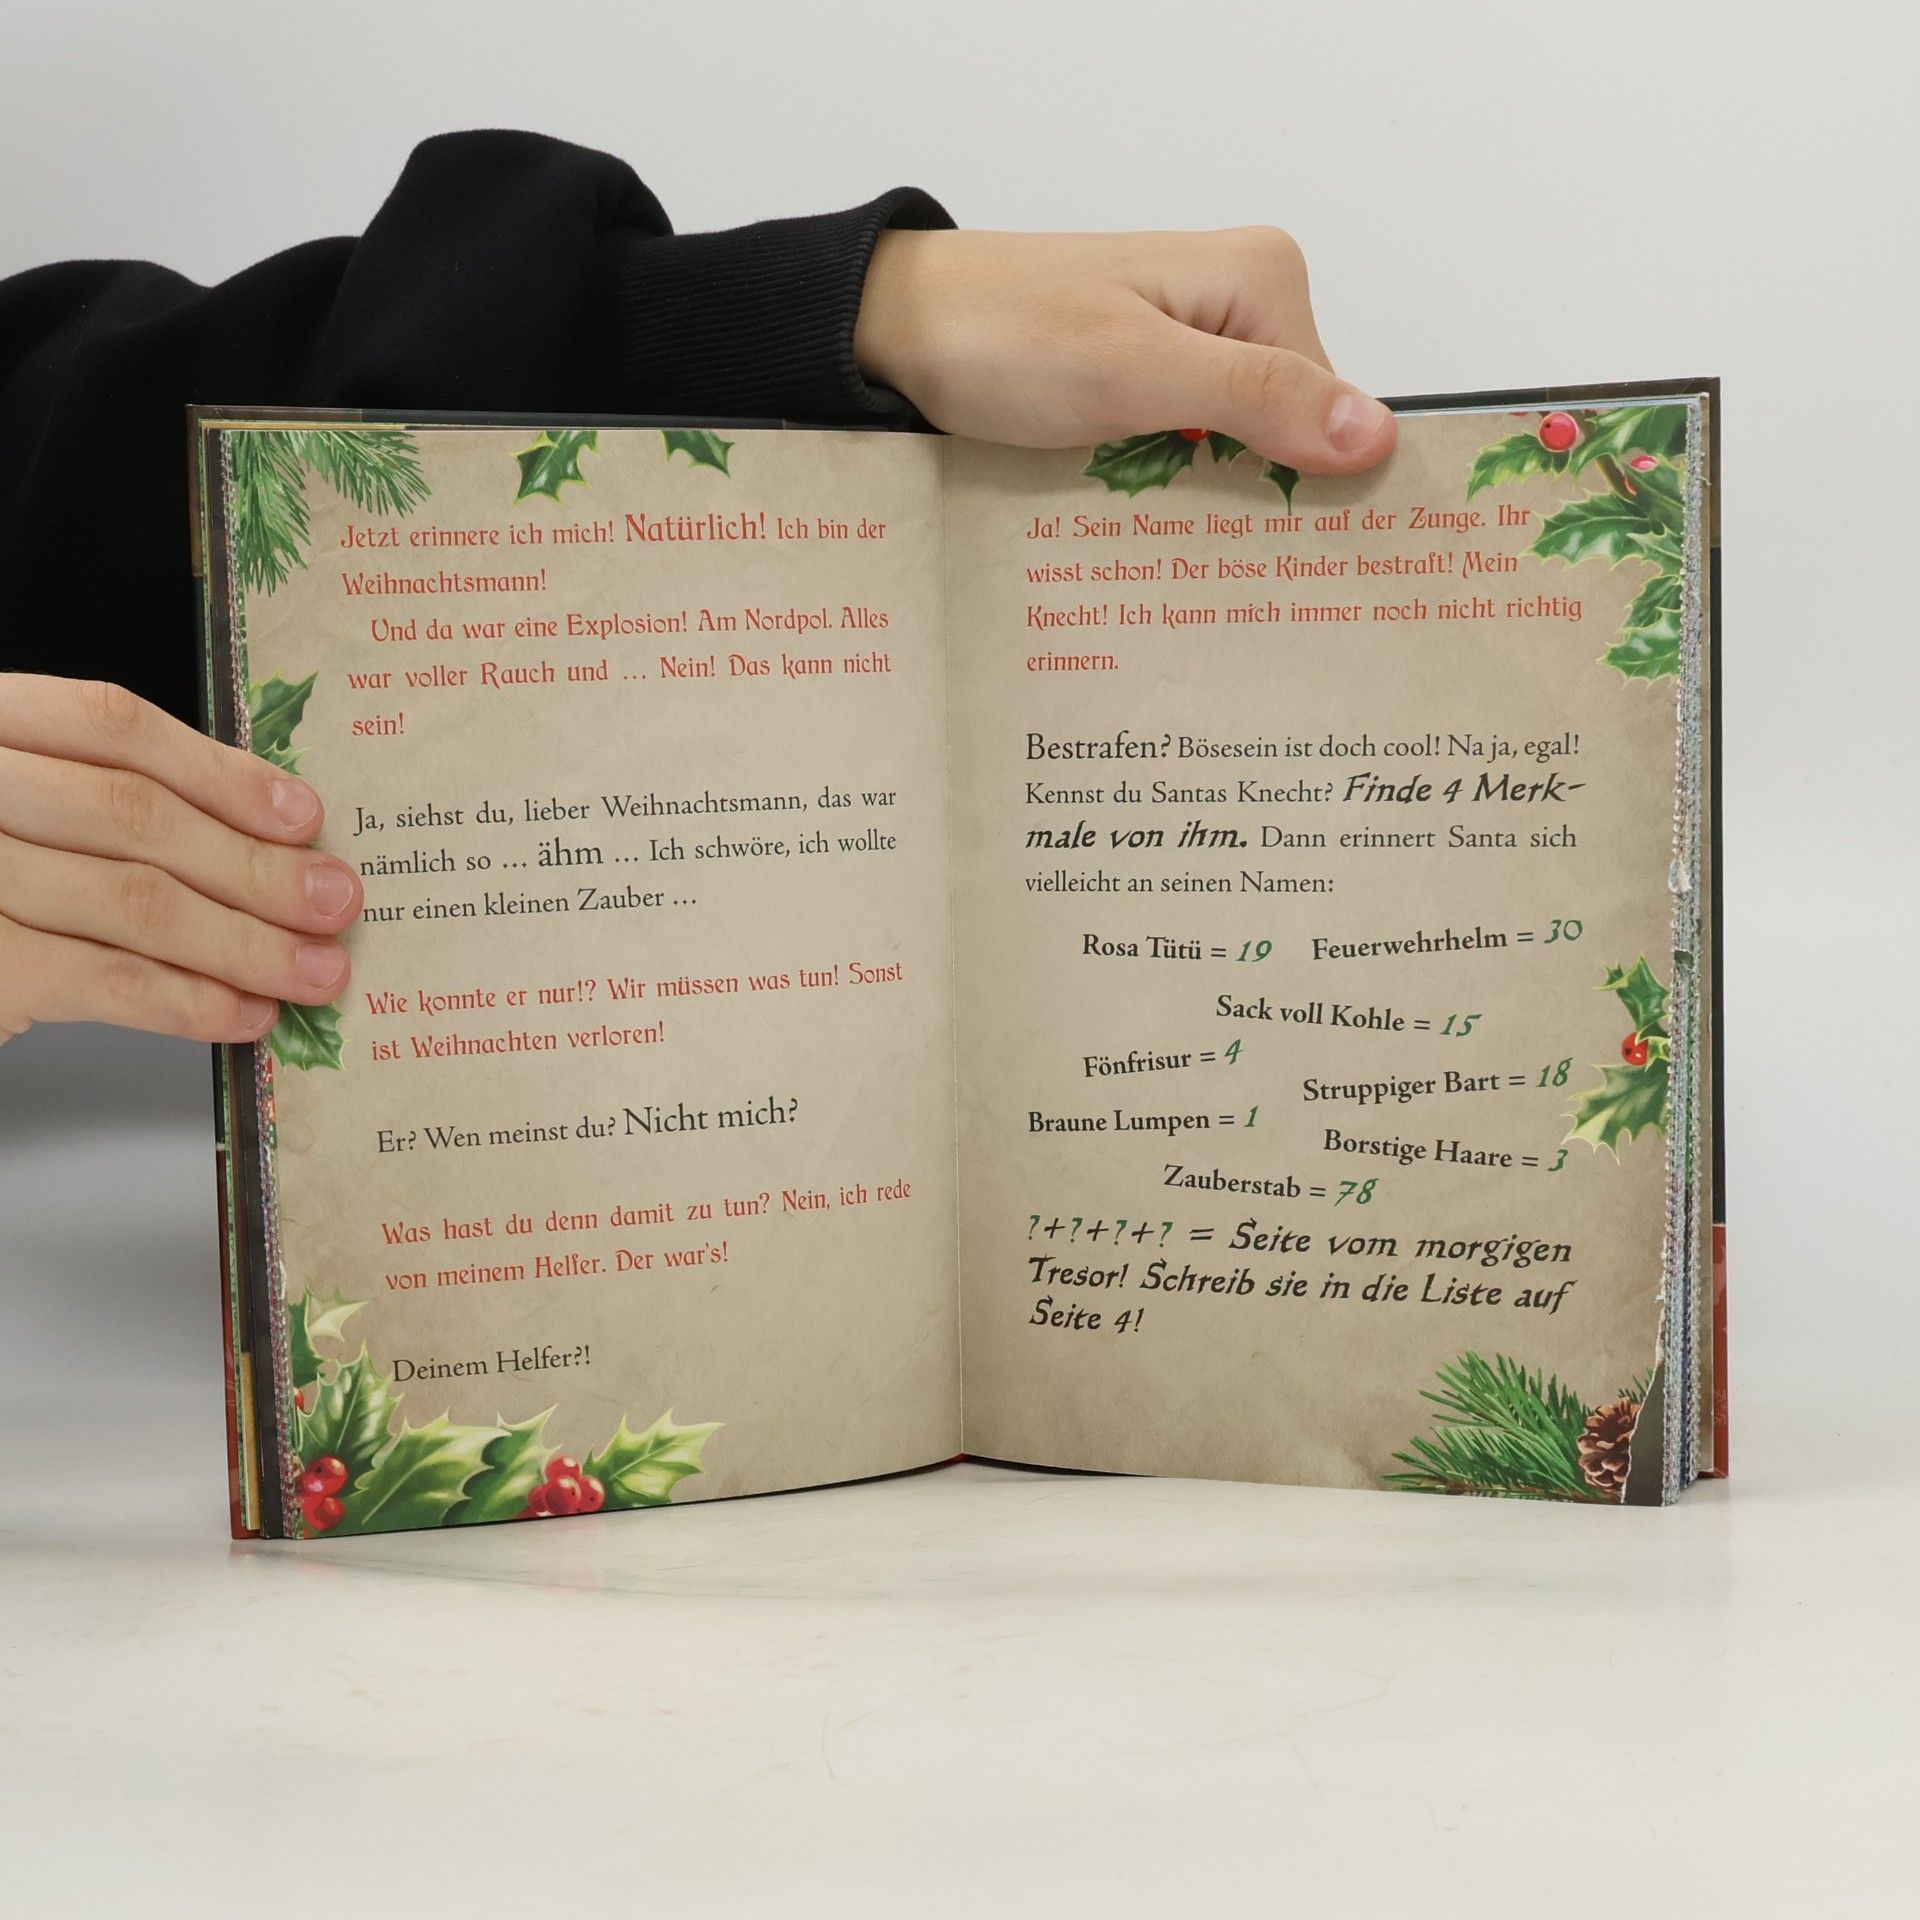 Jetzt erinnere ich mich! Natürlich! Ich bin der
Weihnachtsmann!
Und da war eine Explosion! Am Nordpol. Alles
war voller Rauch und … Nein! Das kann nicht
sein!
Ja, siehst du, lieber Weihnachtsmann, das war
nämlich so … ähm … Ich schwöre, ich wollte
nur einen kleinen Zauber …
Wie konnte er nur!? Wir müssen was tun! Sonst
ist Weihnachten verloren!
Er? Wen meinst du? Nicht mich?
Was hast du denn damit zu tun? Nein, ich rede
von meinem Helfer. Der war's!
Deinem Helfer?!
Ja! Sein Name liegt mir auf der Zunge. Ihr
wisst schon! Der böse Kinder bestraft! Mein
Knecht! Ich kann mich immer noch nicht richtig
erinnern.
Bestrafen? Bösesein ist doch cool! Na ja, egal!
Kennst du Santas Knecht? Finde 4 Merk-
male von ihm. Dann erinnert Santa sich
vielleicht an seinen Namen:
Rosa Tütü = 19 Feuerwehrhelm = 30
Sack voll Kohle = 15
Fönfrisur = 4
Struppiger Bart = 18
Braune Lumpen = 1
Borstige Haare = 3
Zauberstab = 78
?+?+?+? = Seite vom morgigen
Tresor! Schreib sie in die Liste auf
Seite 4!